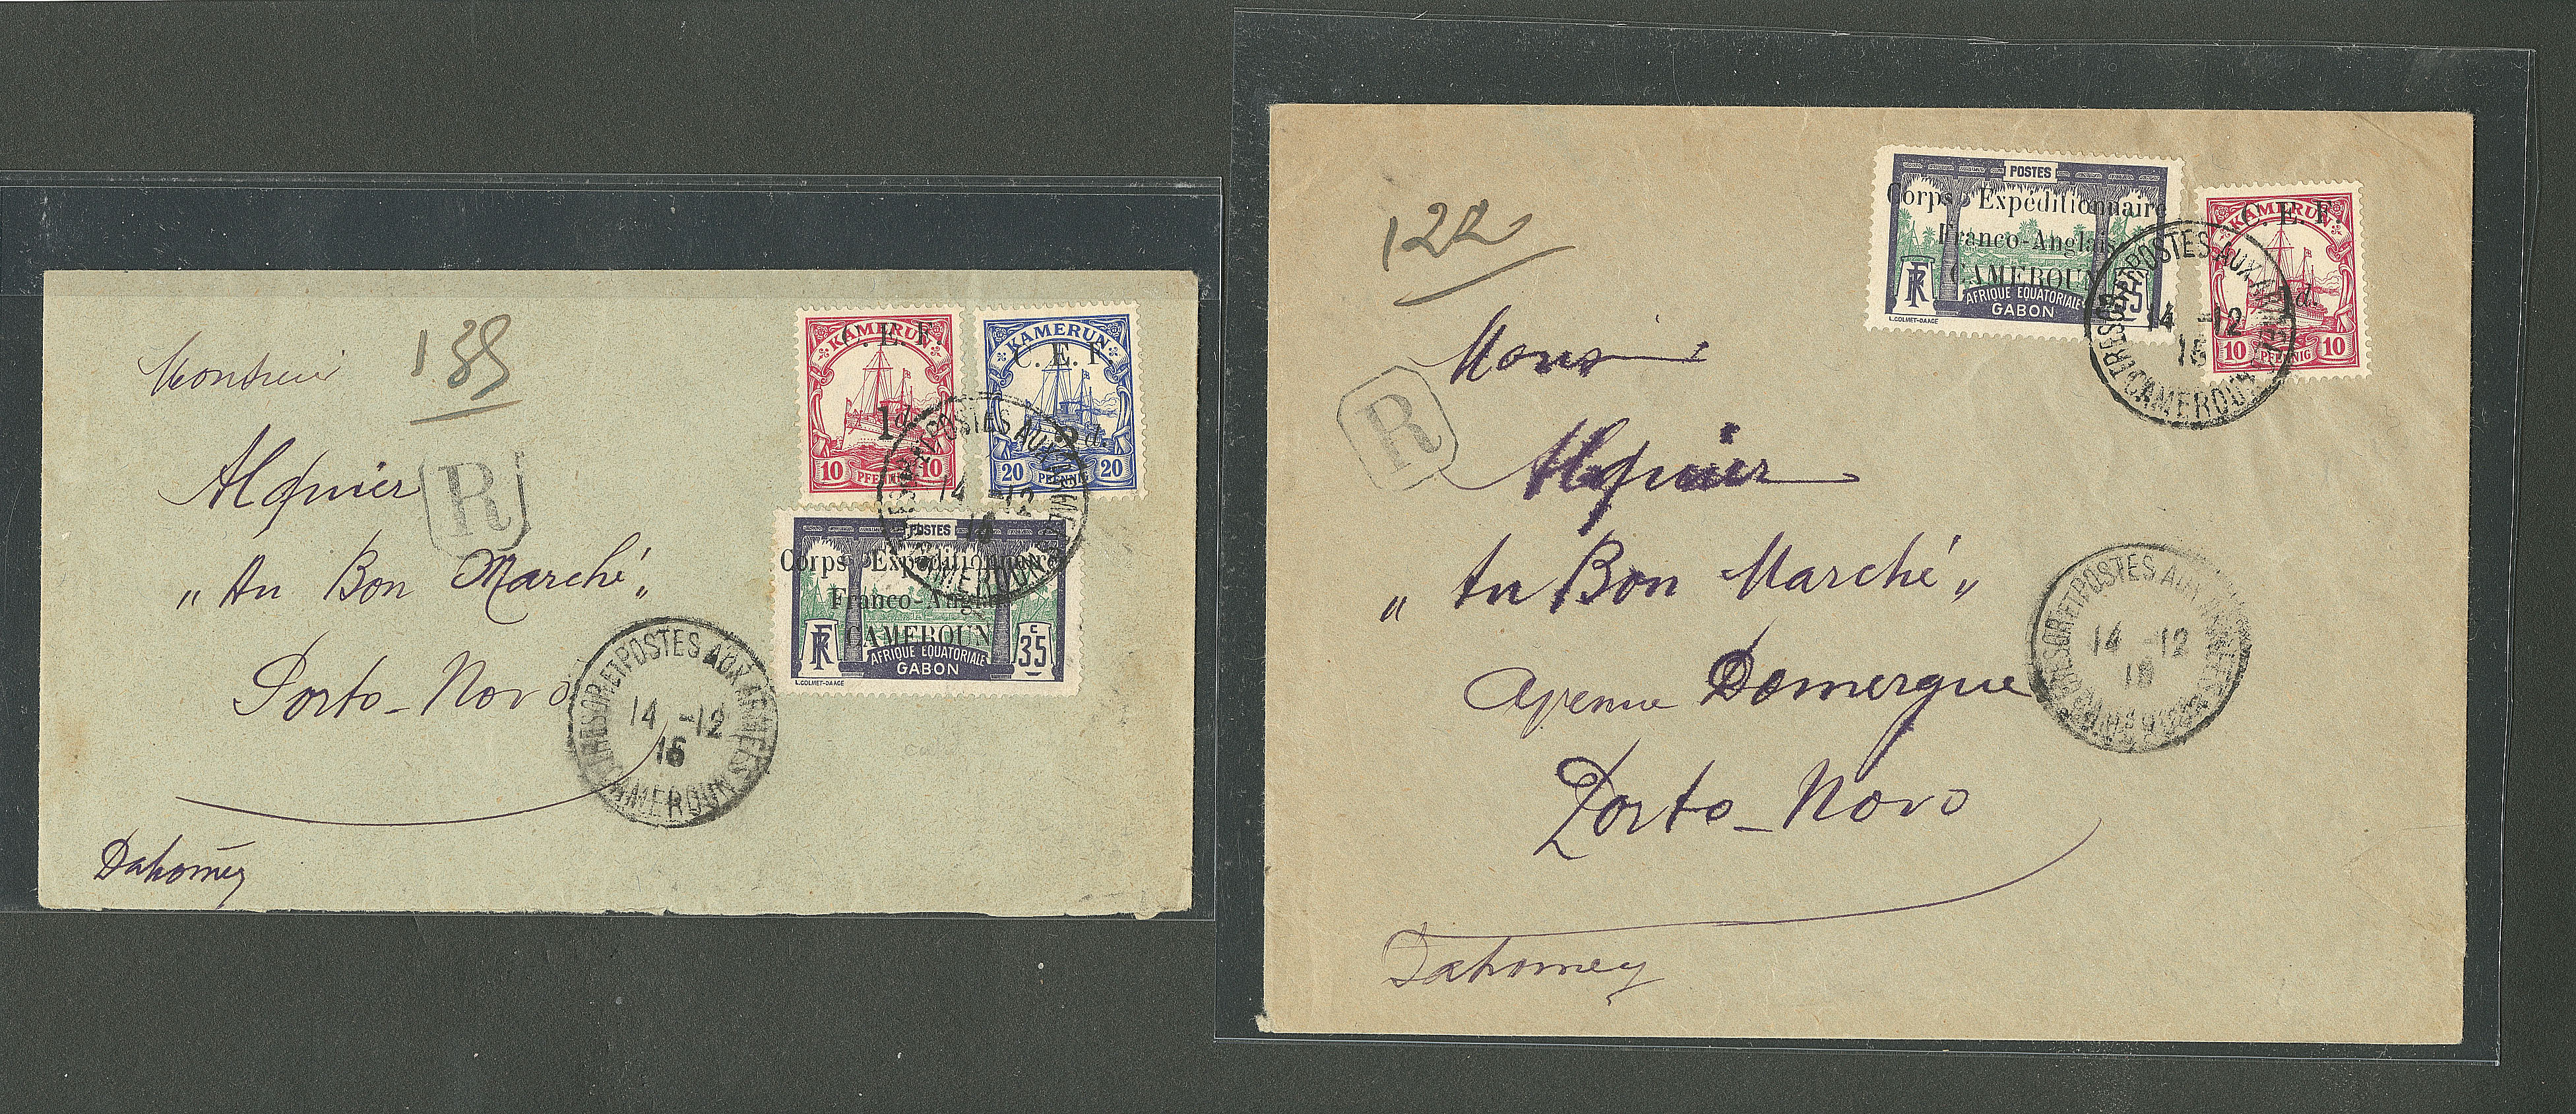 139
Monsieur
Alquier
R
"Au Bon Marché"
Porto-Novo
Dahomey
KAMERUN
C. E. F.
1d.
10 PFENNIG 10
KAMERUN
C. E. F.
2d.
20 PFENNIG 20
POSTES
Corps Expéditionnaire
Franco-Anglais
CAMEROUN
RF
35 c
AFRIQUE EQUATORIALE
GABON
L.COLMET-DAAGE
TRESOR ET POSTES AUX ARMEES
14 -12
CAMEROUN
TRESOR ET POSTES AUX ARMEES
14 -12
16
CAMEROUN
122
Monsi
Alquier
R
"Au Bon Marché"
Avenue Domergue
Porto-Novo
Dahomey
POSTES
Corps Expéditionnaire
Franco-Anglais
CAMEROUN
RF
35
AFRIQUE EQUATORIALE
GABON
L.COLMET-DAAGE
KAMERUN
C. E. F.
d.
10 PFENNIG 10
TRESOR ET POSTES AUX ARMEES
14 -12
16
CAMEROUN
TRESOR ET POSTES AUX ARMEES
14 -12
16